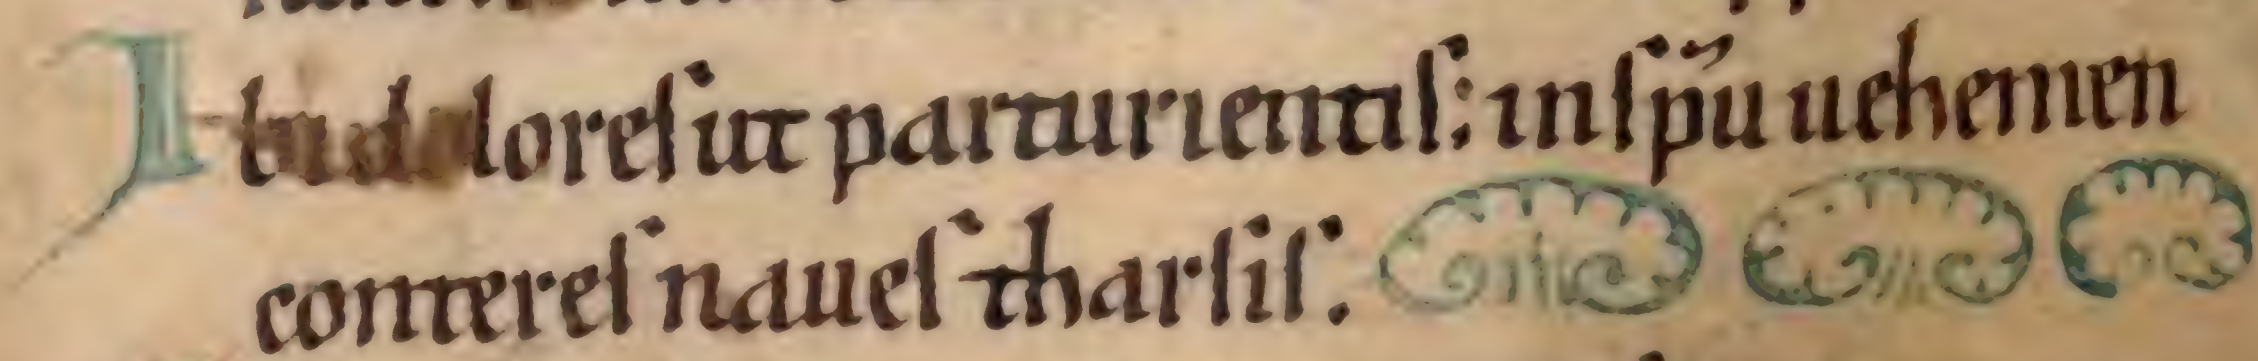 Ibi dolores ut parturientis: in sp̄u uehemen
conteres naues tharsis.